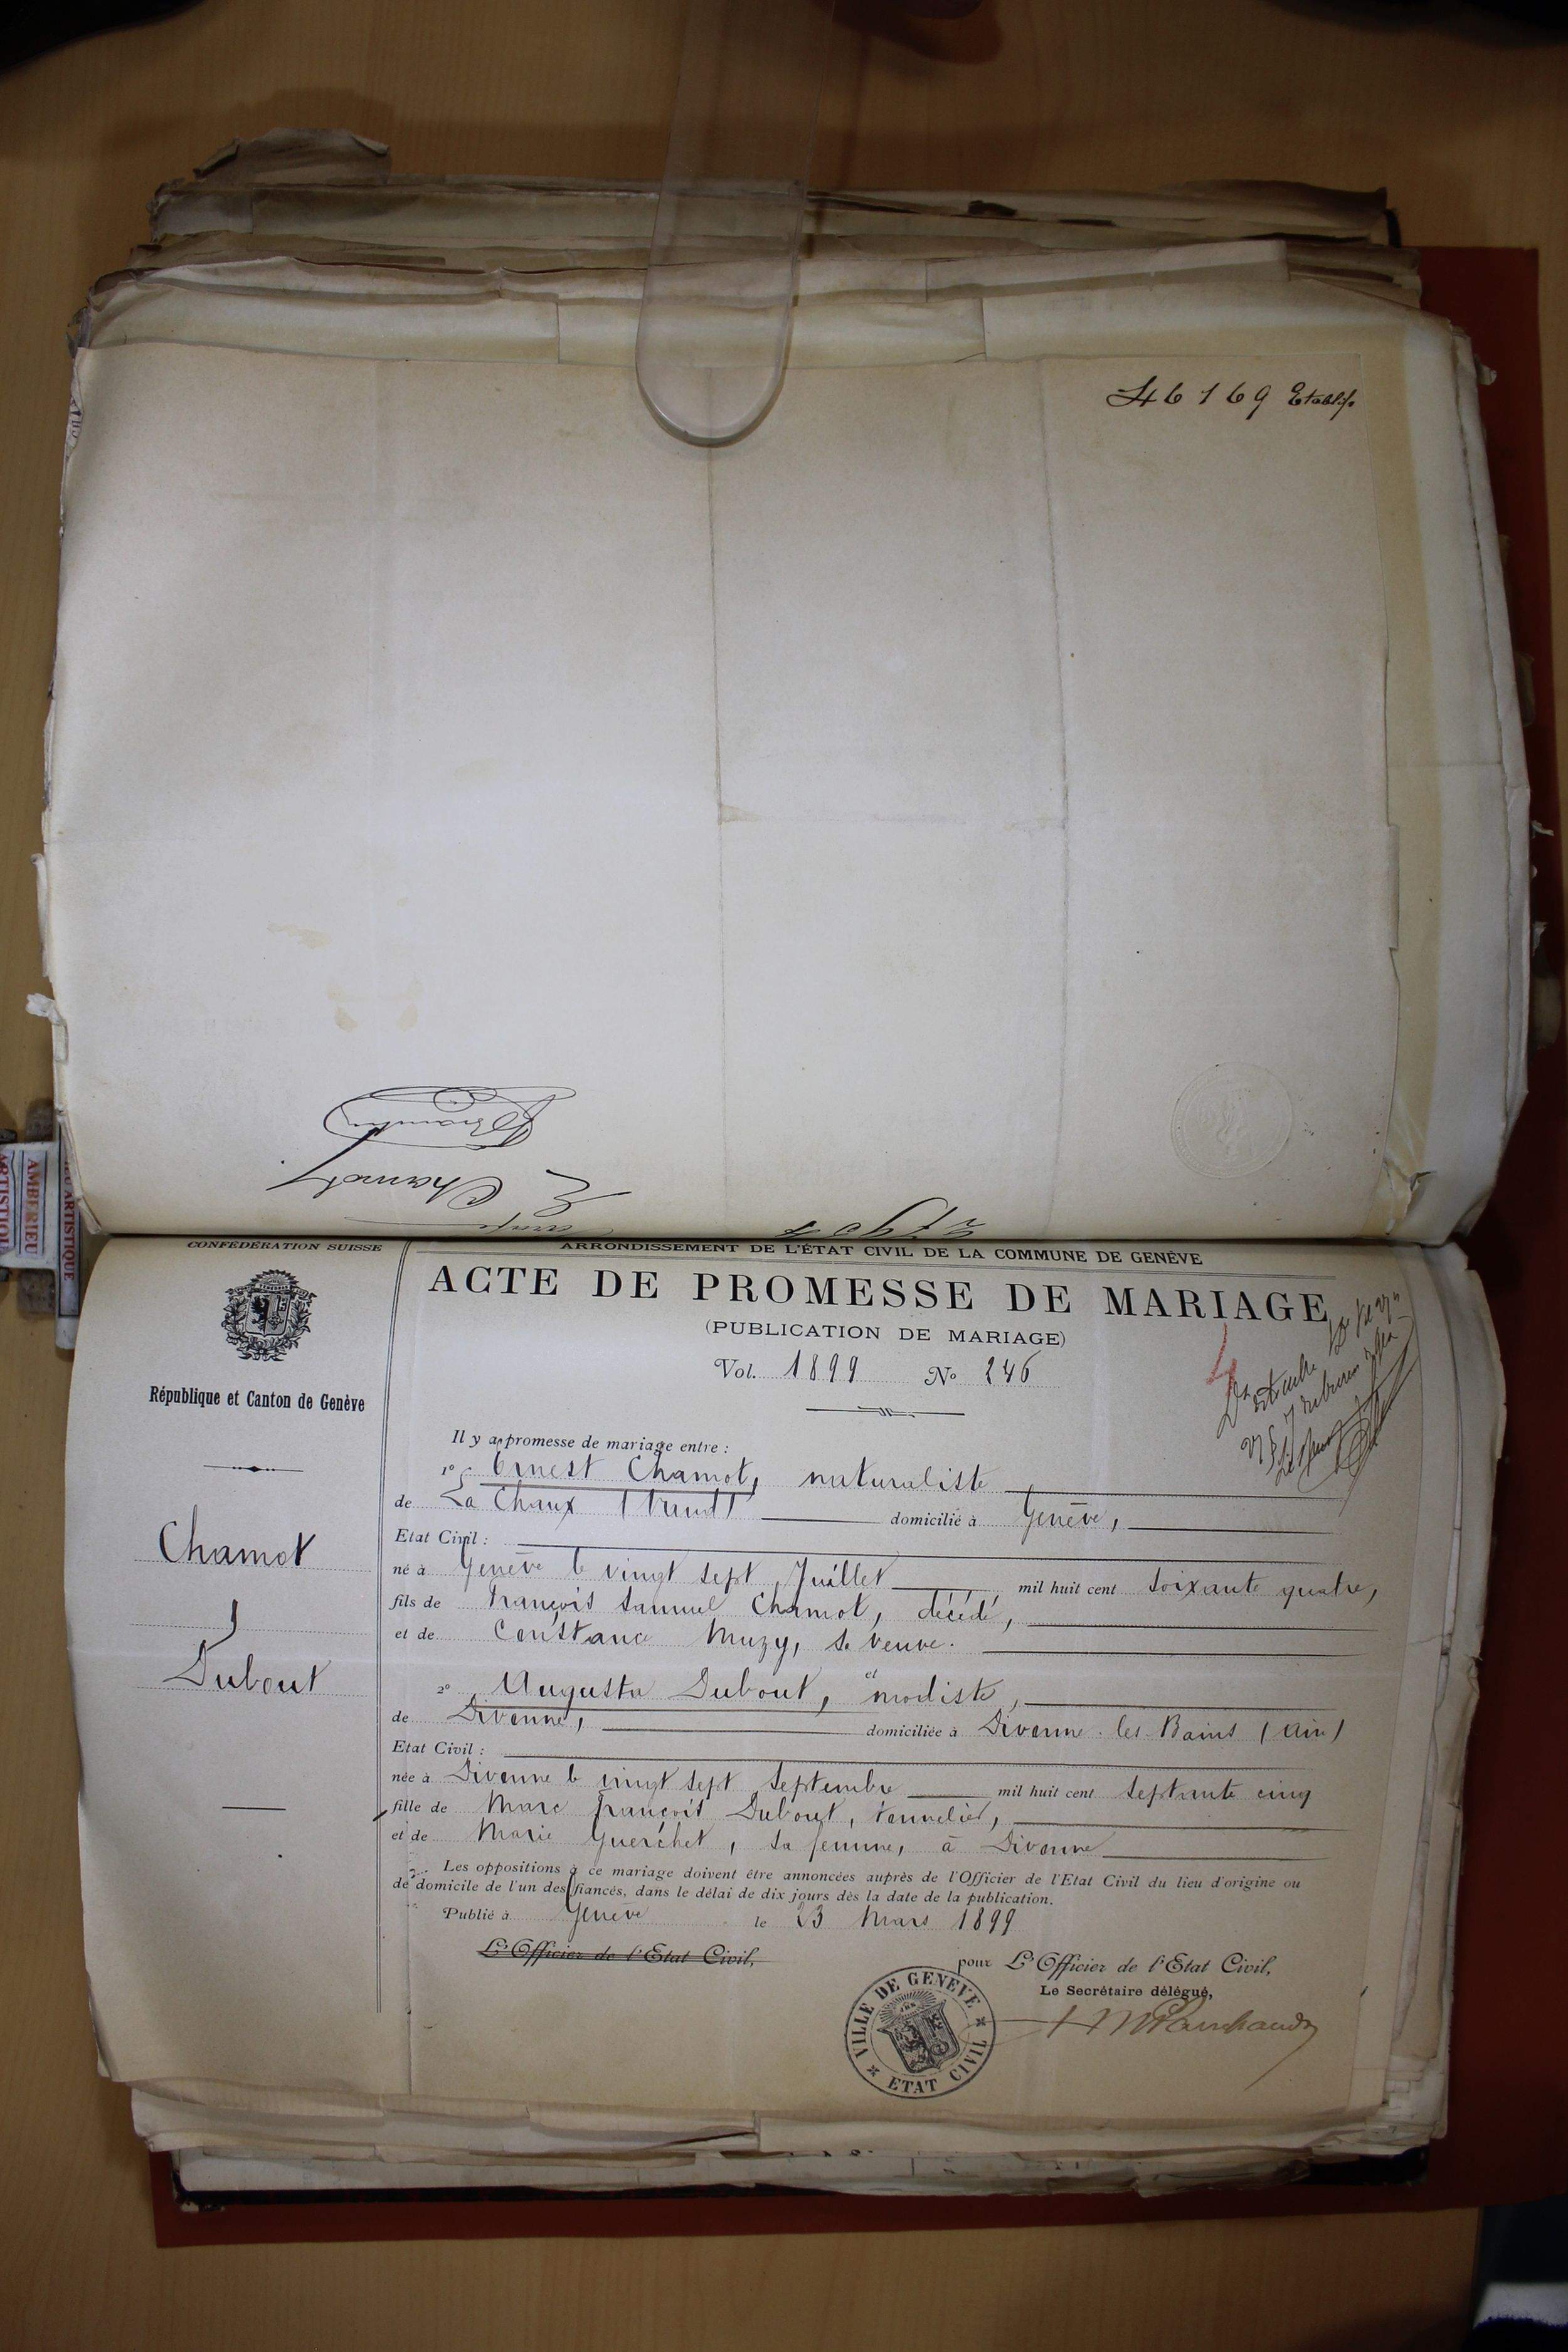 46169 Etabliss
E Chamot
2790
CONFÉDÉRATION SUISSE
République et Canton de Genève
Chamot
Dubout
ARRONDISSEMENT DE L'ÉTAT CIVIL DE LA COMMUNE DE GENÈVE
ACTE DE PROMESSE DE MARIAGE
(PUBLICATION DE MARIAGE)
Vol. 1899 No 246
Il y a promesse de mariage entre :
1o Ernest Chamot, naturaliste
de La Chaux (Vaud) domicilié à Genève,
Etat Civil :
né à Genève le vingt sept Juillet mil huit cent soixante quatre,
fils de François Samuel Chamot, décédé,
et de Constance Muzy, sa veuve.
et
2o Augusta Dubout, modiste,
de Divonne, domiciliée à Divonne-les-Bains (Ain)
Etat Civil :
née à Divonne le vingt sept Septembre mil huit cent septante cinq
fille de Marc François Dubout, tonnelier,
et de Marie Guerchet, sa femme, à Divonne
Les oppositions à ce mariage doivent être annoncées auprès de l'Officier de l'Etat Civil du lieu d'origine ou
de domicile de l'un des fiancés, dans le délai de dix jours dès la date de la publication.
Publié à Genève le 23 Mars 1899
L'Officier de l'Etat Civil,
pour L'Officier de l'Etat Civil,
Le Secrétaire délégué,
VILLE DE GENEVE
ETAT CIVIL
AMBERIEU
ARTISTIQUE